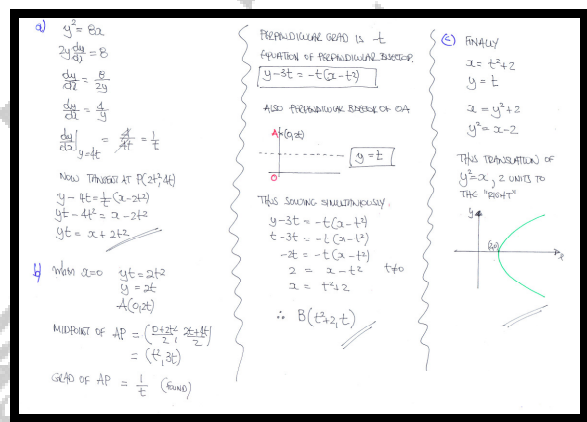 a) y² = 8x
2y dy/dx = 8
dy/dx = 8/2y
dy/dx = 4/y
dy/dx | y=4t = 4/4t = 1/t
NOW TANGENT AT P(2t², 4t)
y - 4t = 1/t (x - 2t²)
yt - 4t² = x - 2t²
yt = x + 2t²
b) WHEN x=0 yt = 2t²
y = 2t
A(0,2t)
MIDPOINT OF AP = (0+2t²/2, 2t+4t/2)
= (t², 3t)
GRAD OF AP = 1/t (FOUND)
PERPENDICULAR GRAD IS -t
EQUATION OF PERPENDICULAR BISECTOR.
y - 3t = -t(x - t²)
ALSO PERPENDICULAR BISECTOR OF OA
A (0,2t)
y = t
O
THUS SOLVING SIMULTANEOUSLY.
y - 3t = -t(x - t²)
t - 3t = -t(x - t²)
-2t = -t(x - t²)
2 = x - t² t≠0
x = t² + 2
∴ B(t²+2, t)
c) FINALLY
x = t² + 2
y = t
x = y² + 2
y² = x - 2
THIS TRANSLATION OF
y² = x, 2 UNITS TO
THE "RIGHT"
y
(2,0)
x